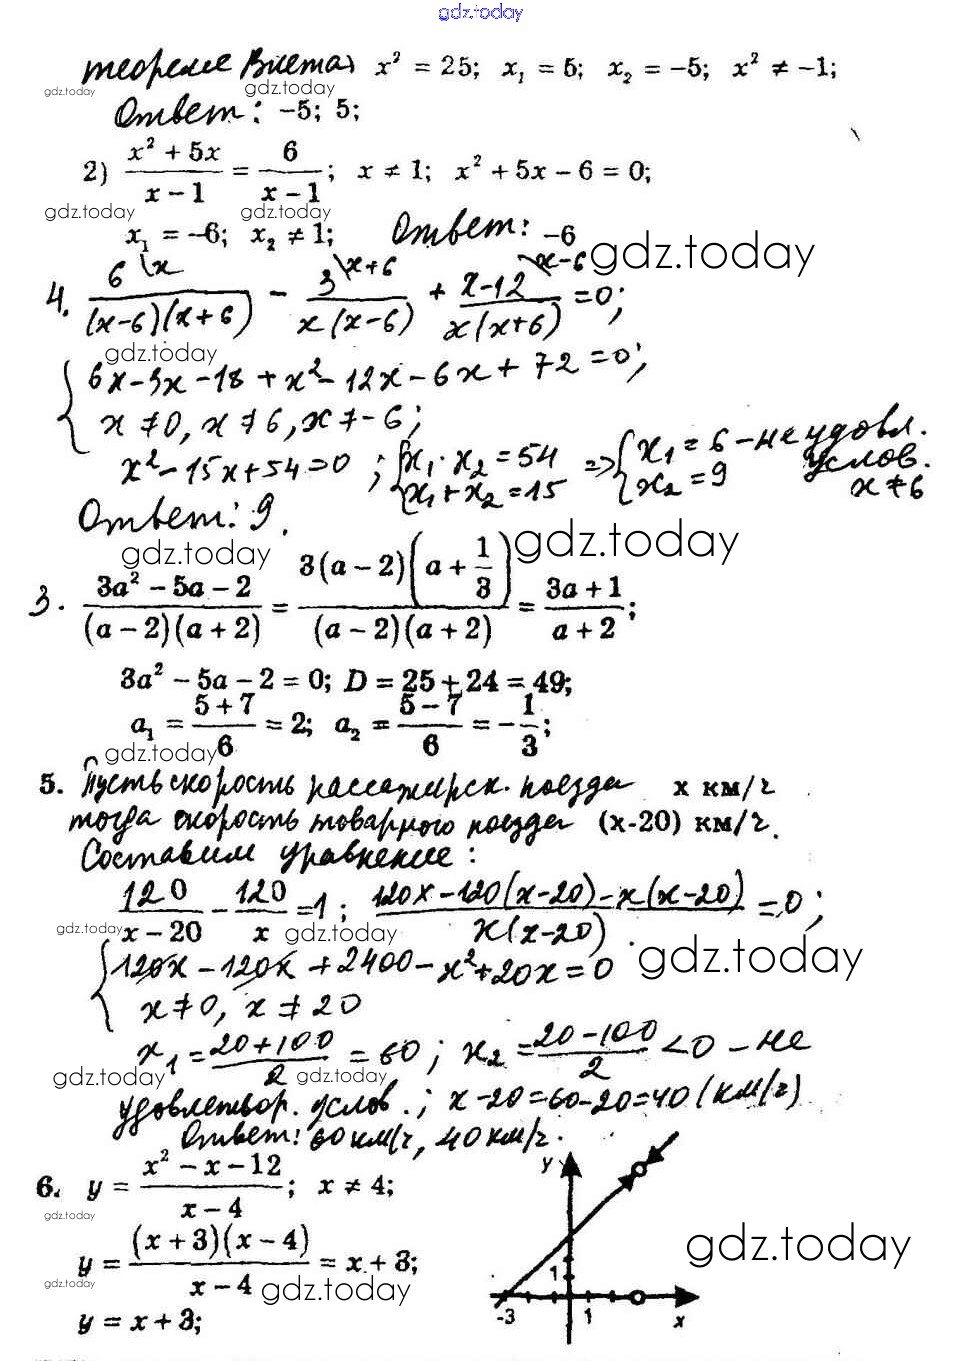 gdz.today
теореме Виета) x² = 25; x₁ = 5; x₂ = −5; x² ≠ −1;
gdz.today gdz.today
Ответ: −5; 5;
2) (x² + 5x)/(x − 1) = 6/(x − 1); x ≠ 1; x² + 5x − 6 = 0;
gdz.today gdz.today
x₁ = −6; x₂ ≠ 1; Ответ: −6
gdz.today
4. 6\x/((x−6)(x+6)) − 3\x+6/(x(x−6)) + x−12\x−6/(x(x+6)) = 0;
gdz.today
{ 6x−3x−18+x²−12x−6x+72=0;
x≠0, x≠6, x≠−6;
x²−15x+54=0; { x₁·x₂=54 x₁+x₂=15 => { x₁=6 − не удовл. услов. x≠6 x₂=9
Ответ: 9.
gdz.today gdz.today
3. (3a² − 5a − 2)/((a − 2)(a + 2)) = 3(a − 2)(a + 1/3)/((a − 2)(a + 2)) = (3a + 1)/(a + 2);
3a² − 5a − 2 = 0; D = 25 + 24 = 49;
a₁ = (5 + 7)/6 = 2; a₂ = (5 − 7)/6 = −1/3;
gdz.today
5. Пусть скорость пассажирск. поезда x км/ч
тогда скорость товарного поезда (x-20) км/ч.
Составим уравнение:
120/(x − 20) − 120/x = 1; (120x−120(x−20)−x(x−20))/(x(x−20)) = 0;
gdz.today gdz.today gdz.today
{ 120x−120x+2400−x²+20x=0
x≠0, x≠20
x₁ = (20+100)/2 = 60; x₂ = (20−100)/2 < 0 − не
gdz.today gdz.today
удовлетвор. услов.; x−20=60−20=40 (км/ч)
Ответ: 60 км/ч, 40 км/ч.
6. y = (x² − x − 12)/(x − 4); x ≠ 4;
gdz.today
y = (x + 3)(x − 4)/(x − 4) = x + 3;
gdz.today gdz.today gdz.today
y = x + 3;
y
1
-3 1 x